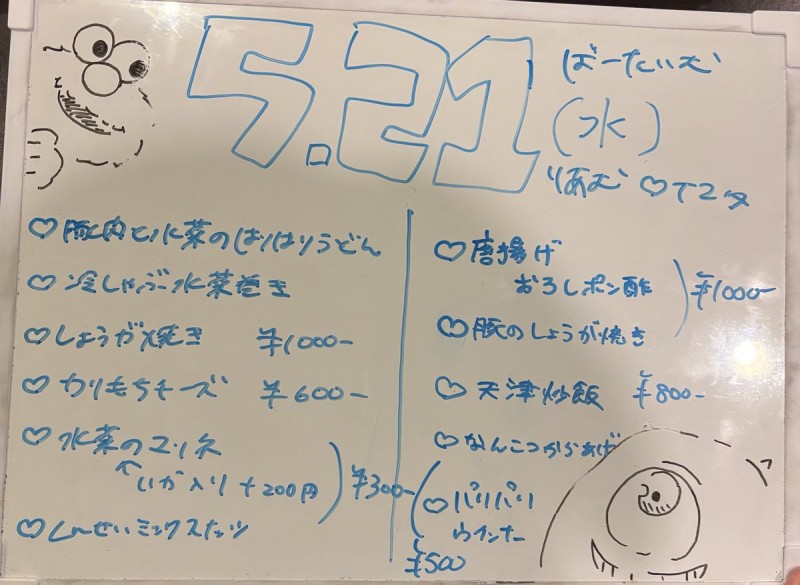 5.21
ばーたいむ
(水)
りあむ♡てつや
♡豚肉と水菜のはりはりうどん
♡冷しゃぶ水菜巻き
♡しょうが焼き ¥1000-
♡カリもちチーズ ¥600-
♡水菜のマリネ
↖いか入り+200円
¥300-
♡くんせいミックスナッツ
♡唐揚げ
おろしポン酢
¥1000-
♡豚のしょうが焼き
♡天津炒飯 ¥800-
♡なんこつからあげ
♡パリパリ
ウインナー
¥500